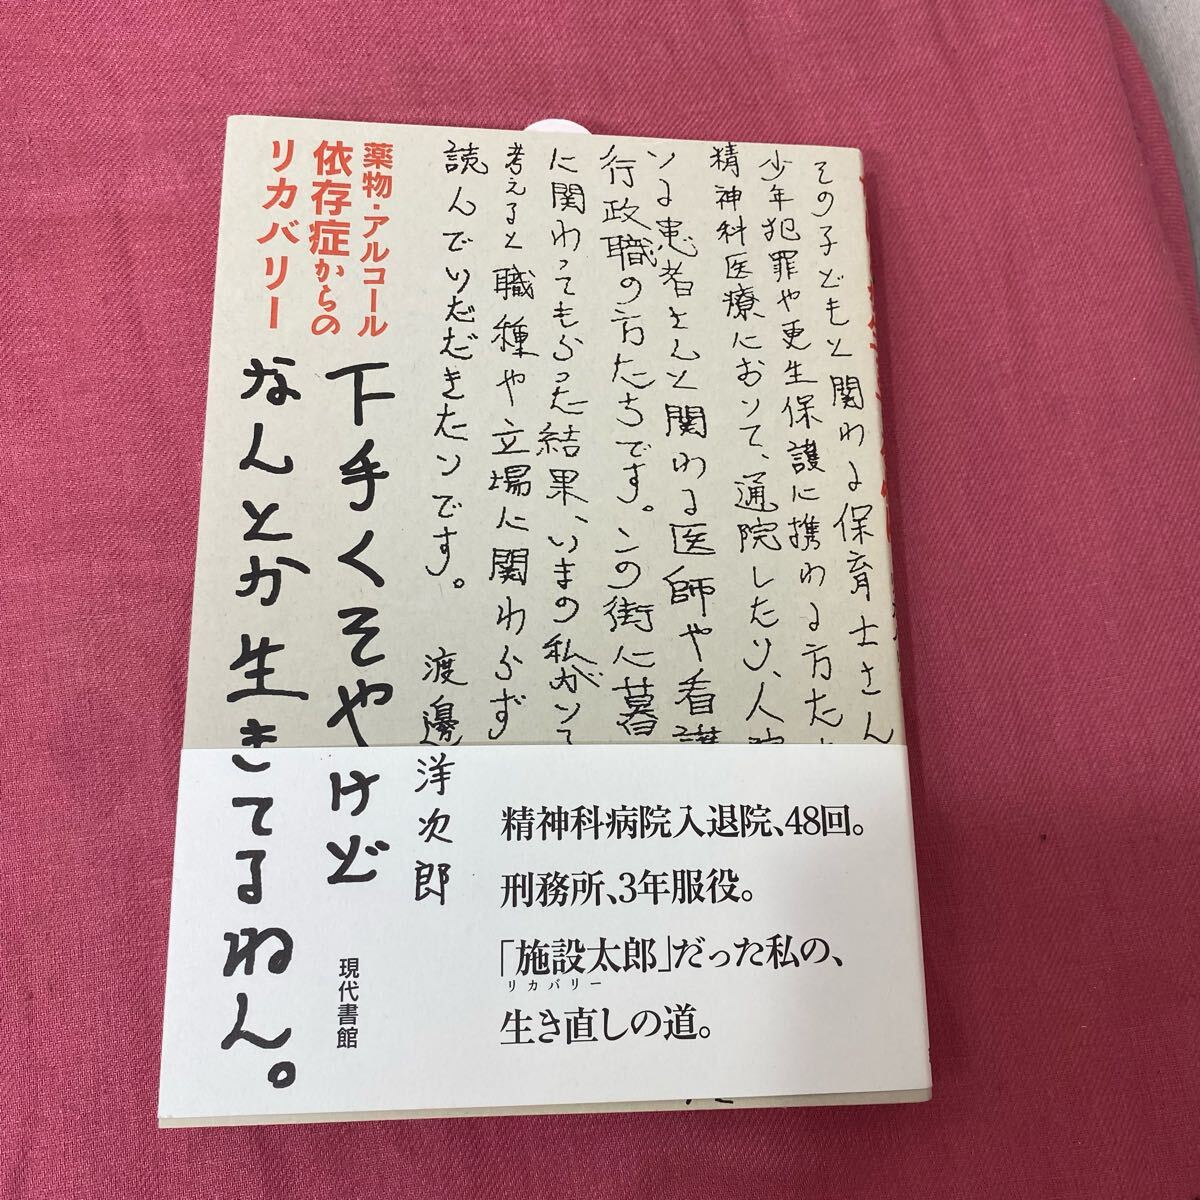 その子どもと関わる保育士さん
少年犯罪や更生保護に携わる方た
精神科医療において、通院したり、入院
いる患者さんと関わる医師や看護
行政職の方たちです。この街に暮
に関わってもらった結果、いまの私がいて
考えると職種や立場に関わらず
読んでいだだきたいです。
渡邊洋次郎
薬物・アルコール
依存症からの
リカバリー
下手くそやけど
なんとか生きてるねん。
現代書館
精神科病院入退院、48回。
刑務所、3年服役。
「施設太郎」だった私の、
リカバリー
生き直しの道。